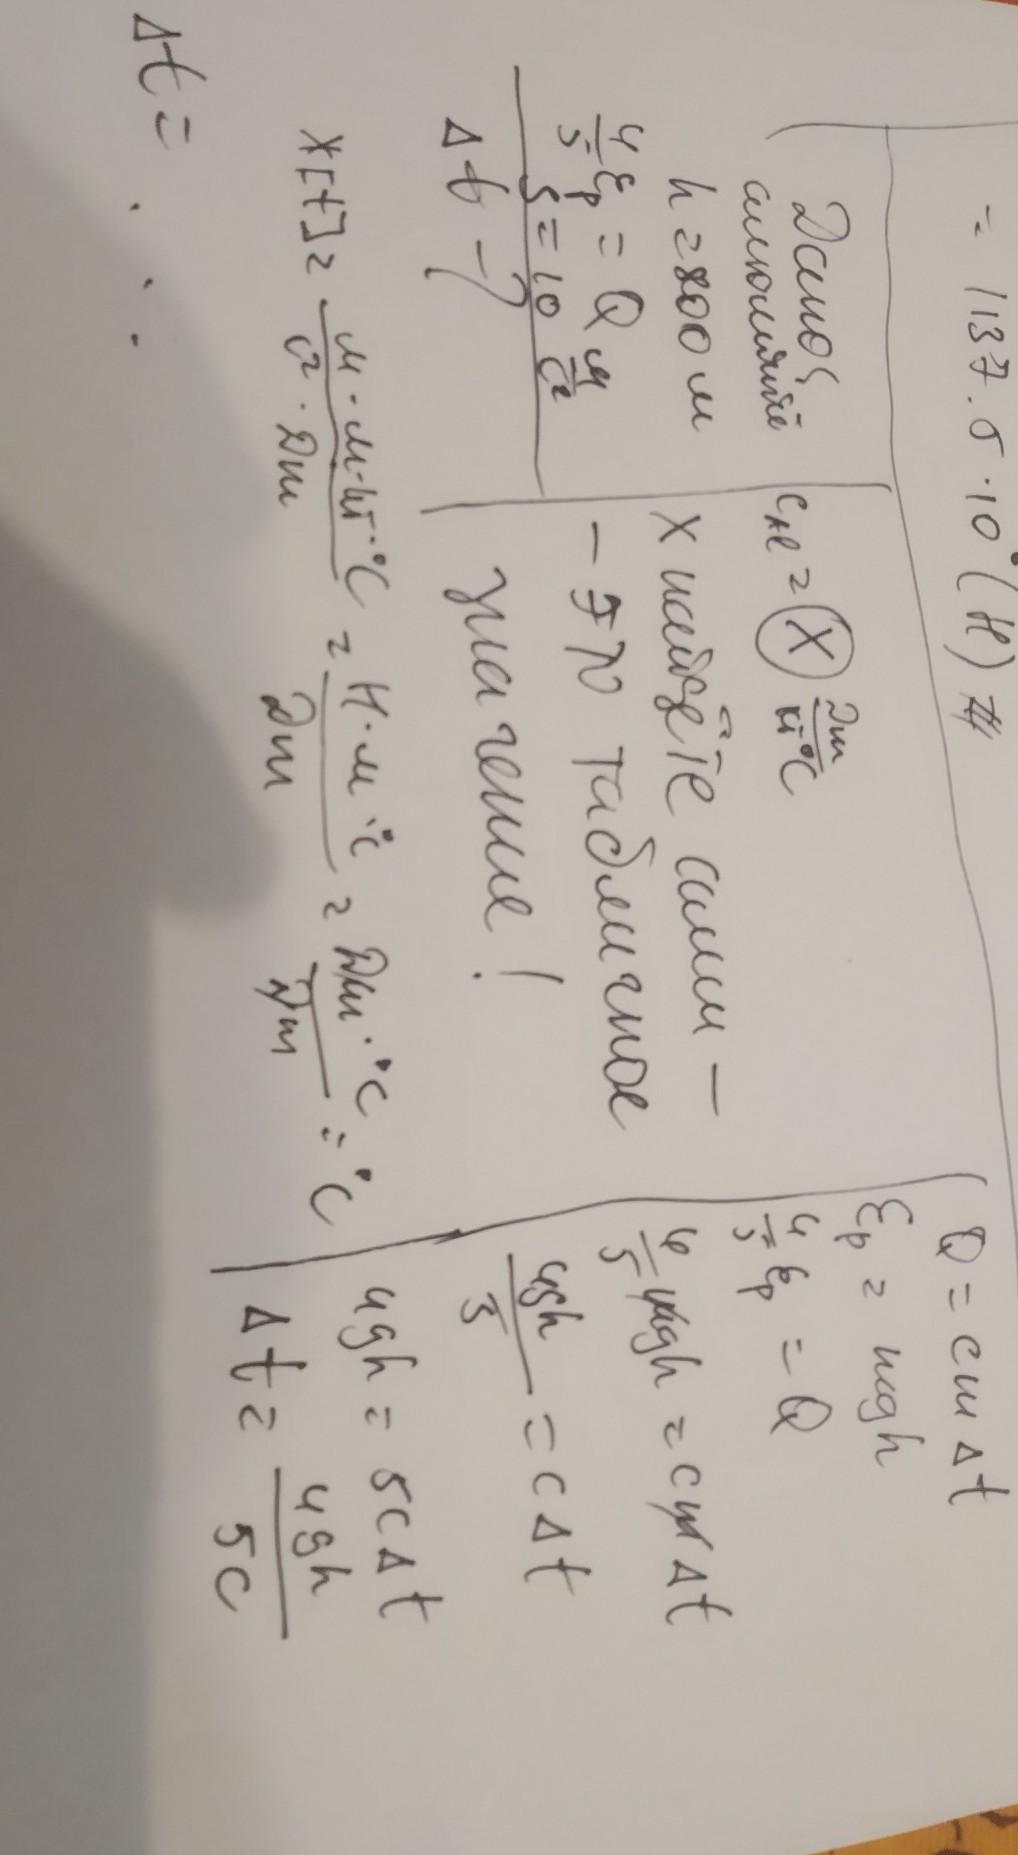 = 1137.5 · 10 (Н) #
Дано:
алюминий
h = 800 м
4/5 Ep = Q
g = 10 м/с²
Δt - ?
c Al = X Дж/кг°C
X найдёте сами -
- это табличное
значение!
Q = cmΔt
Ep = mgh
4/5 Ep = Q
4/5 mgh = cmΔt
4gh/5 = cΔt
4gh = 5cΔt
Δt = 4gh/5c
*[t] = м·м·кг·°C/с²·Дж = Н·м·°C/Дж = Дж·°C/Дж = °C
Δt = . . .